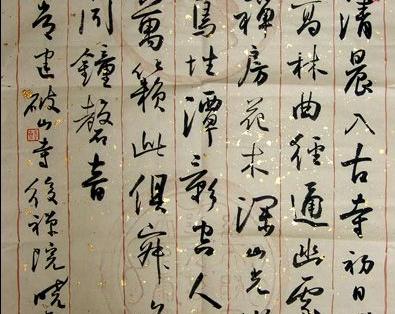 清晨入古寺初日
高林曲徑通幽處
禪房花木深山光
鳥性潭影空人
萬籟此俱寂
聞鐘磬音
常建破山寺後禪院